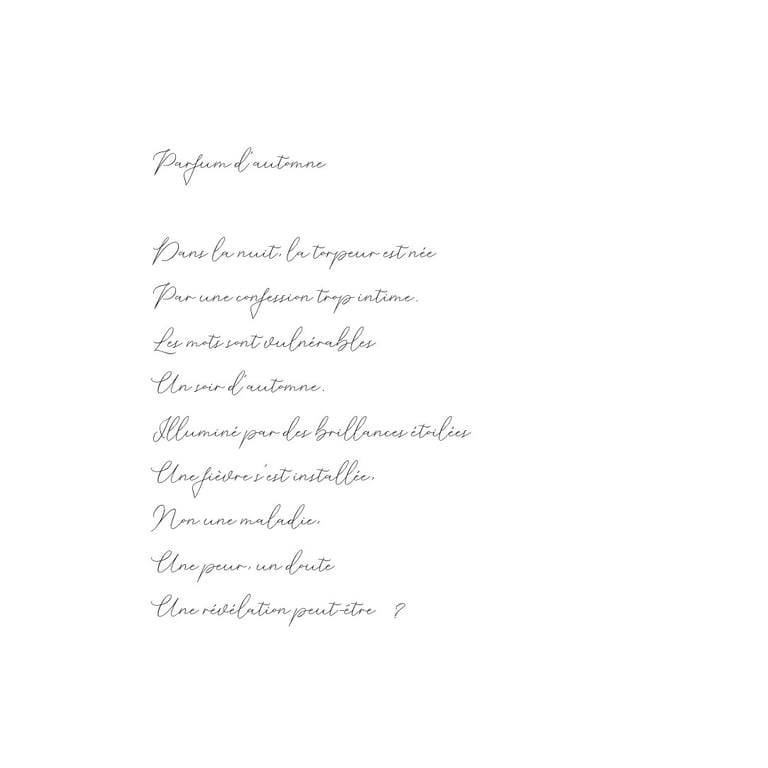 Parfum d'automne
Dans la nuit, la torpeur est née
Par une confession trop intime.
Les mots sont vulnérables
Un soir d'automne.
Illuminé par des brillances étoilées
Une fièvre s'est installée,
Non une maladie,
Une peur, un doute
Une révélation peut-être ?